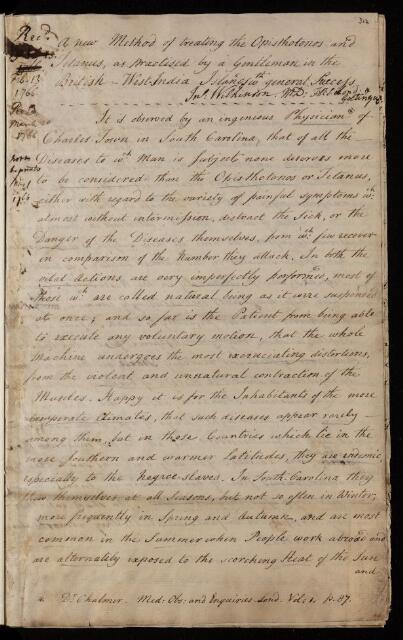 312
Rec.d
Feb. 13
1766
Read
March
1766
A new Method of treating the Opisthotonos and
Tetanus, as practised by a Gentleman in the
British West-India Islands wth general Success.
Jn.o Wilkinson, M.D.
It is observed by an ingenious Physician a of
Charles Town in South Carolina, that of all the
Diseases to wch Man is subject none deserves more
to be considered than the Opisthotonos or Tetanus,
either with regard to the variety of painful symptoms wch
almost without intermission, distract the Sick, or the
Danger of the Diseases themselves, from wch few recover
in comparison of the Number they attack. In both the
vital Actions are very imperfectly performed, most of
those wch are called natural being as it were suspended
at once; and so far is the Patient from being able
to execute any voluntary motion, that the whole
Machine undergoes the most excruciating distortions,
from the violent and unnatural contraction of the
Muscles. Happy it is for the Inhabitants of the more
temperate Climates, that such diseases appear rarely
among them, but in those Countries which lie in the
more Southern and warmer Latitudes, they are endemic,
especially to the Negroe slaves. In South Carolina they
shew themselves at all Seasons, but not so often in Winter;
more frequently in Spring and Autumn, and are most
common in the Summer when People work abroad and
are alternately exposed to the scorching Heat of the Sun
and
a. Dr Chalmer. Med: Obs: and Enquiries Lond. Vol: 1. p. 87.